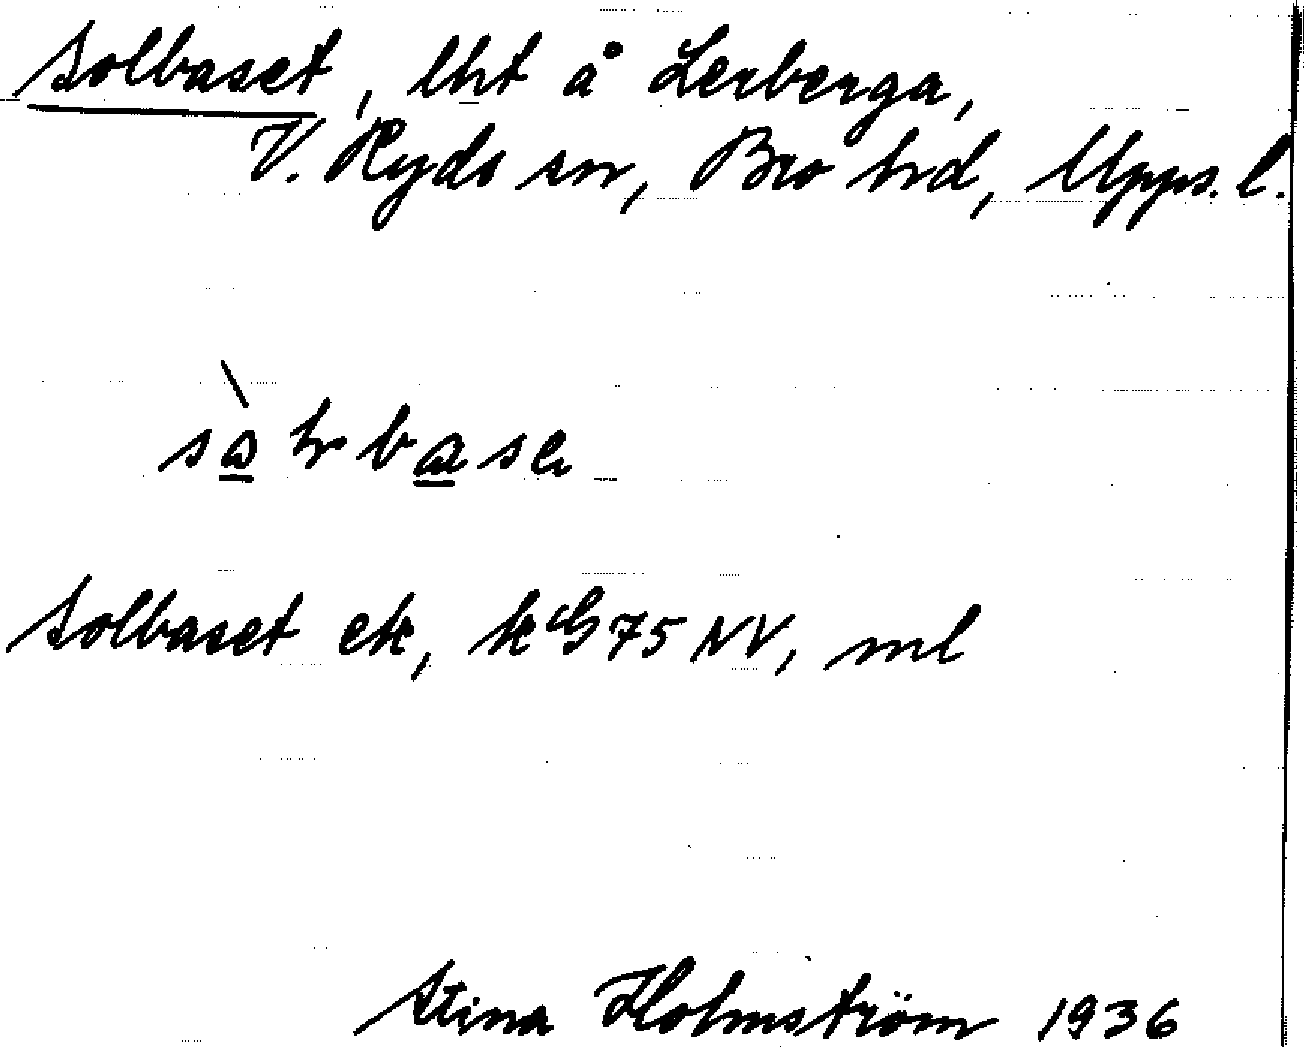 Solbaset, lht å Lerberga,
V. Ryds sn, Bro hrd, Upps. l.
Solbaset ek, kG75 NV, ml
Stina Holmström 1936